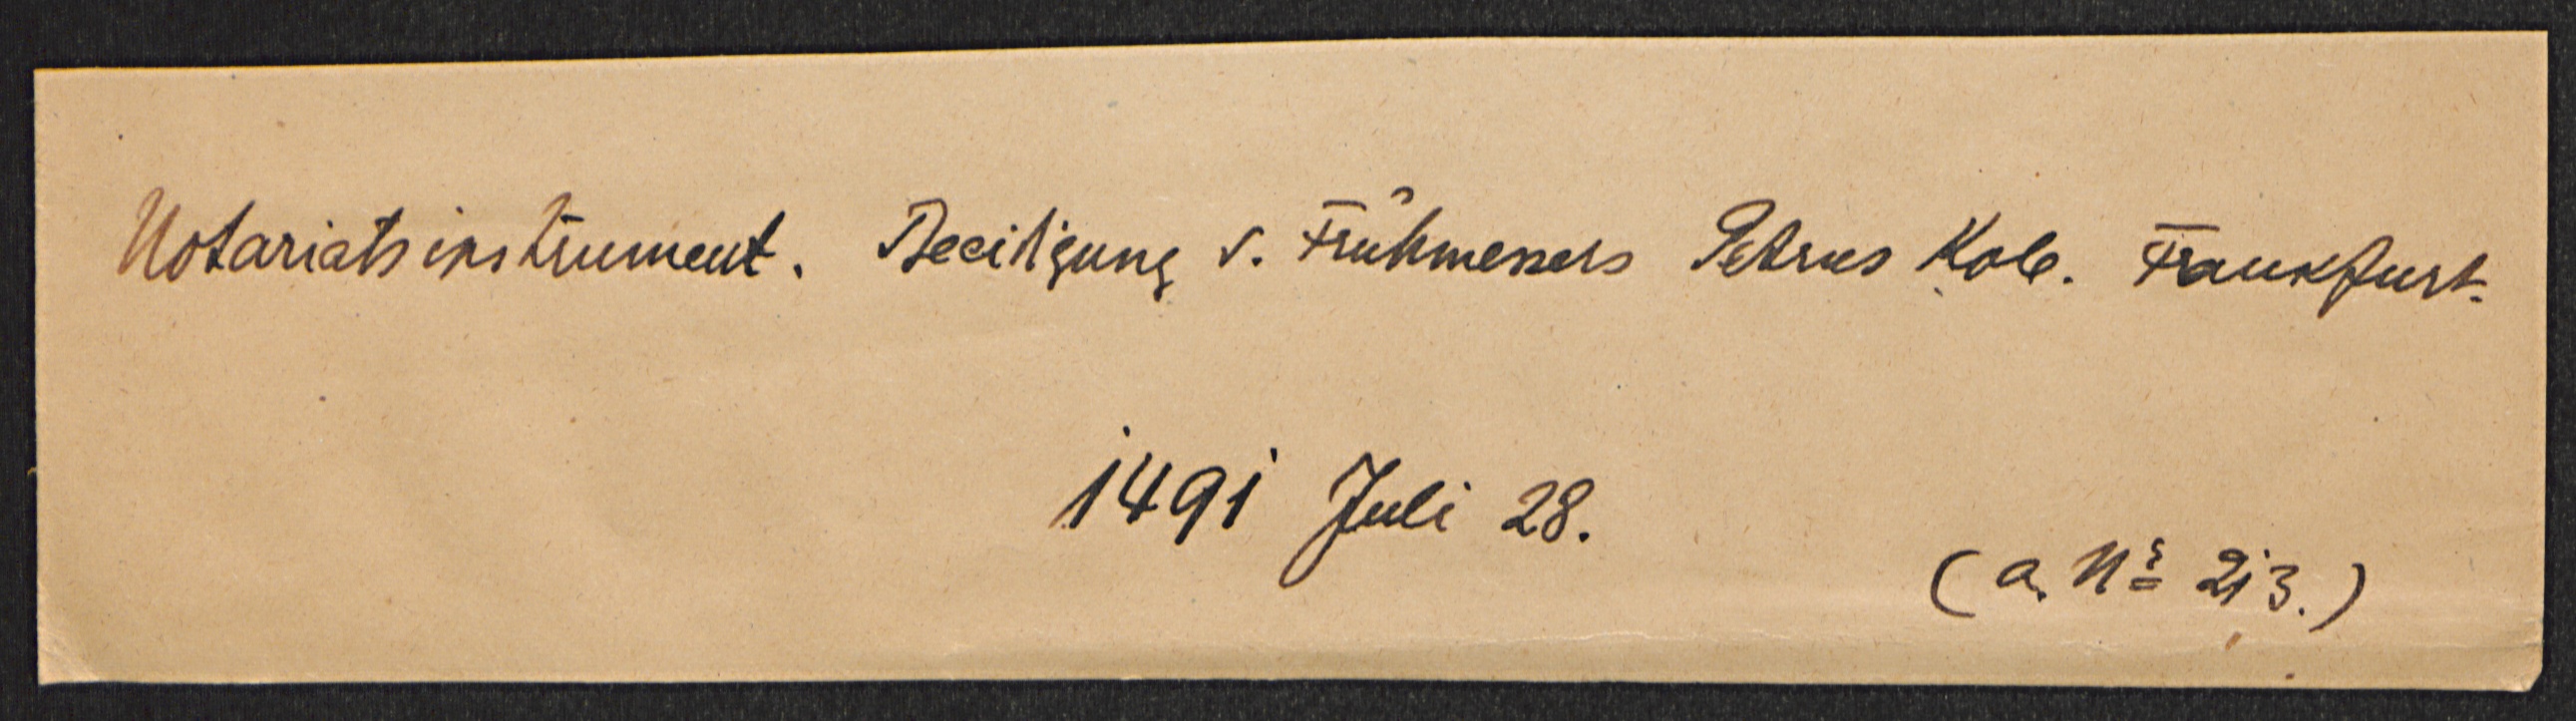 Notariatsinstrument. Beeidigung d. Frühmessers Petrus Kole. Frankfurt.
1491 Juli 28.
(a. Nr 213.)